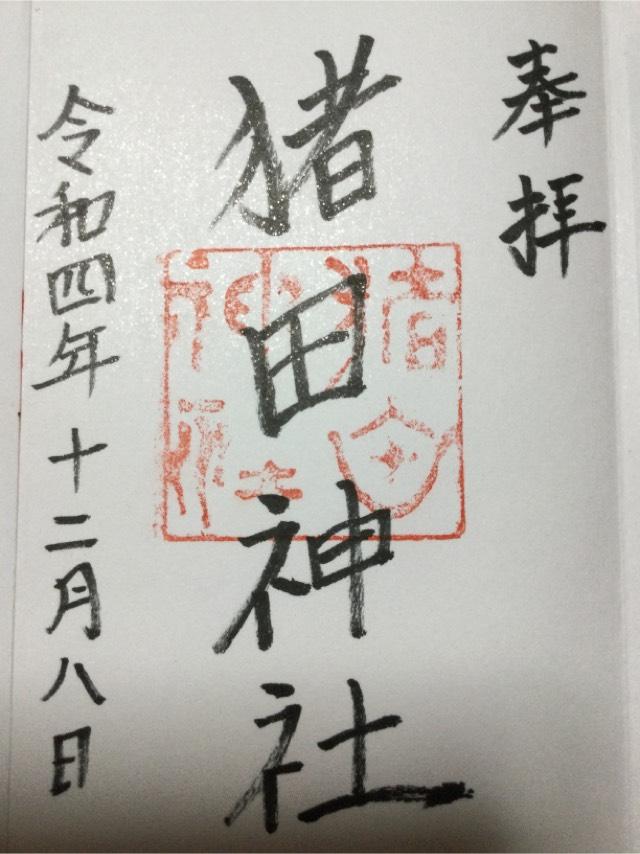 奉拝
猪田神社
令和四年十二月八日
猪田
神社